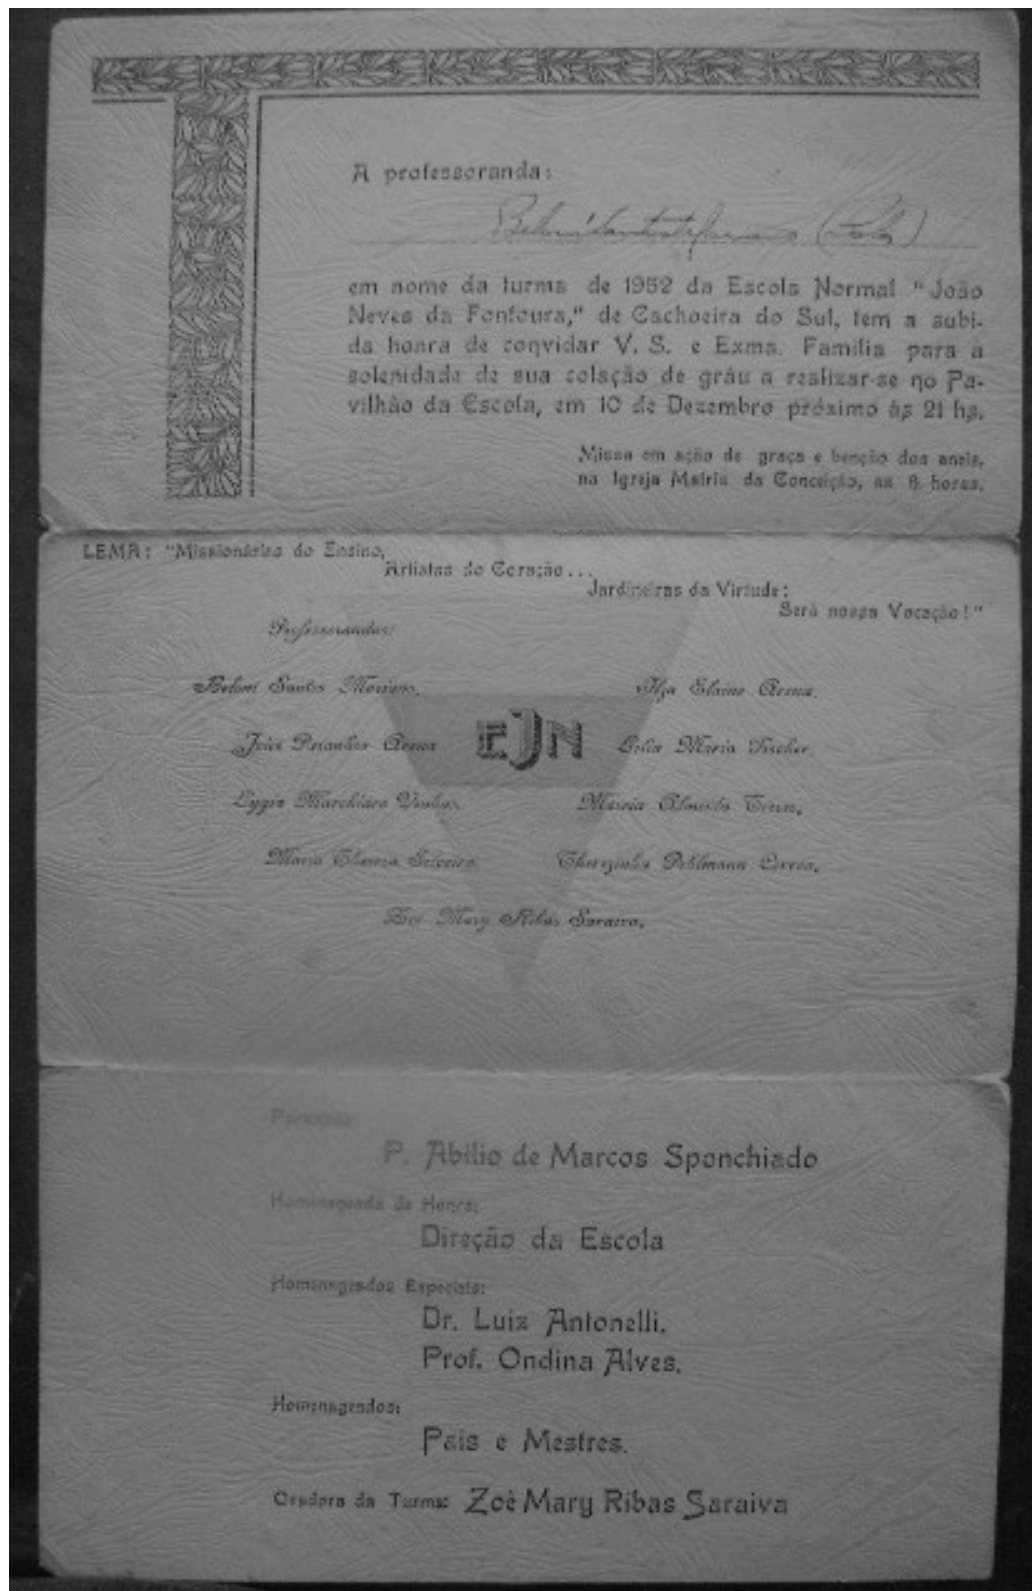 A professoranda:
em nome da turma de 1952 da Escola Normal "João
Neves da Fontoura," de Cachoeira do Sul, tem a subi-
da honra de convidar V. S. e Exma. Família para a
solenidade de sua colação de gráu a realizar-se no Pa-
vilhão da Escola, em 10 de Dezembro próximo às 21 hs.
Missa em ação de graça e benção dos aneis,
na Igreja Matriz da Conceição, as 8 horas.
LEMA: "Missionárias do Ensino,
Artistas do Coração...
Jardineiras da Virtude:
Será nossa Vocação!"
Professorandas:
Beloni Santos Mariano.
Ilza Elaine Arena.
Joice Arena
EJN
Lelia Maria Fischer.
Lygia Marchiaro
Marcia Almeida
Maria Thereza Silveira.
Therezinha Pohlmann Correa.
Zoé Mary Ribas Saraiva.
Paraninfo:
P. Abilio de Marcos Sponchiado
Homenageada de Honra:
Direção da Escola
Homenageados Especiais:
Dr. Luiz Antonelli.
Prof. Ondina Alves.
Homenageados:
Pais e Mestres.
Oradora da Turma: Zoè Mary Ribas Saraiva